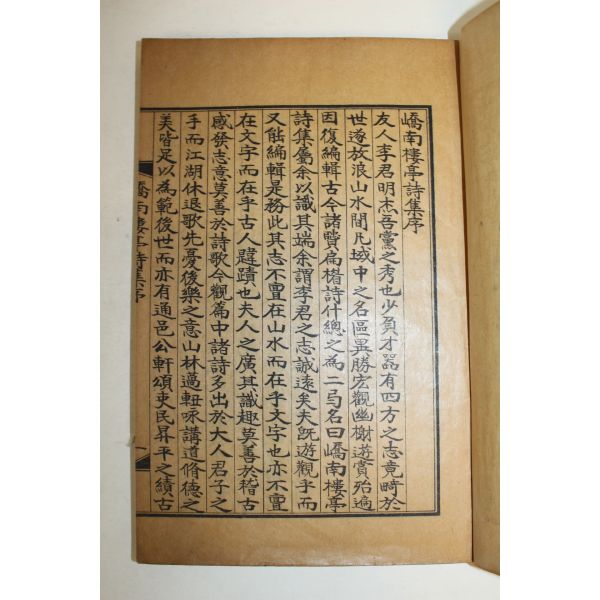 嶠南樓亭詩集序
友人李君明杰吾黨之秀也少負才器有四方之志竟畸於
世遂放浪山水間凡域中之名區異勝宏觀幽榭遊賞殆遍
因復編輯古今諸賢扁楣詩什總之為二弓名曰嶠南樓亭
詩集屬余以識其端余謂李君之志誠遠矣夫旣遊觀乎而
又能編輯是務此其志不亶在山水而在乎文字也亦不亶
在文字而在乎古人韙蹟也夫人之廣其識趣莫善於稽古
感發志意莫善於詩歌今觀篇中諸詩多出於大人君子之
手而江湖休退歌先憂後樂之意山林邁軸咏講道脩德之
美皆足以為範後世而亦有通邑公軒頌吏民昇平之績古
嶠南樓亭詩集序